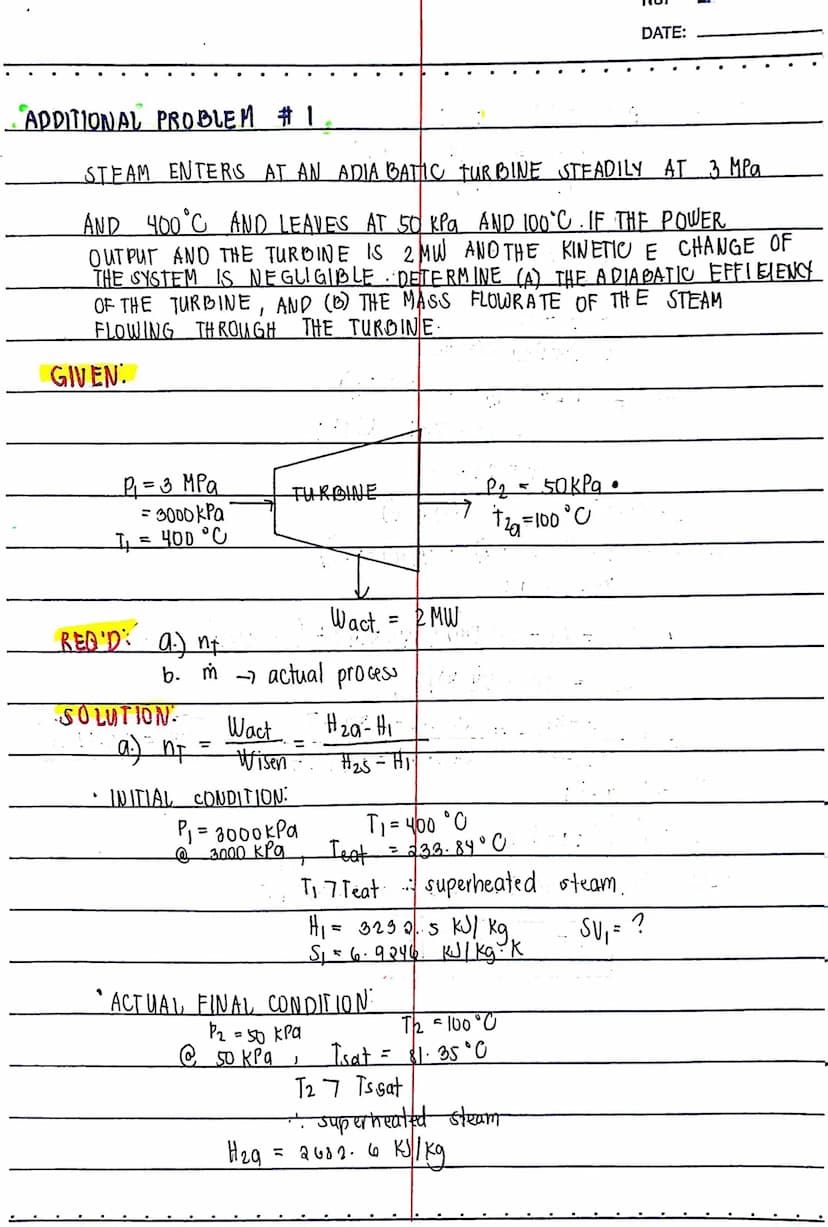 DATE:
ADDITIONAL PROBLEM # 1
STEAM ENTERS AT AN ADIABATIC TURBINE STEADILY AT 3 MPa
AND 400°C AND LEAVES AT 50 KPa AND 100°C. IF THE POWER
OUTPUT AND THE TURBINE IS 2 MW AND THE KINETIC E CHANGE OF
THE SYSTEM IS NEGLIGIBLE. DETERMINE (A) THE ADIABATIC EFFIEIENCY
OF THE TURBINE, AND (B) THE MASS FLOWRATE OF THE STEAM
FLOWING THROUGH THE TURBINE.
GIVEN:
P1 = 3 MPa
= 3000 kPa
T1 = 400 °C
TURBINE
P2 = 50KPa
t2a = 100°C
Wact. = 2 MW
REQ'D: a.) nt
b. ṁ → actual process
SOLUTION:
a.) nT = Wact / Wisen = H2a - H1 / H2s - H1
• INITIAL CONDITION:
P1 = 3000 kPa T1 = 400 °C
@ 3000 KPa, Teat = 233.84°C
T1 > Teat ∴ superheated steam.
H1 = 3232.5 KJ/kg SV1 = ?
S1 = 6.9246 KJ/kg·K
• ACTUAL FINAL CONDITION:
P2 = 50 KPa T2 = 100°C
@ 50 KPa, Tsat = 81.35°C
T2 > Tssat
∴ superheated steam
H2a = 2682.6 KJ/kg